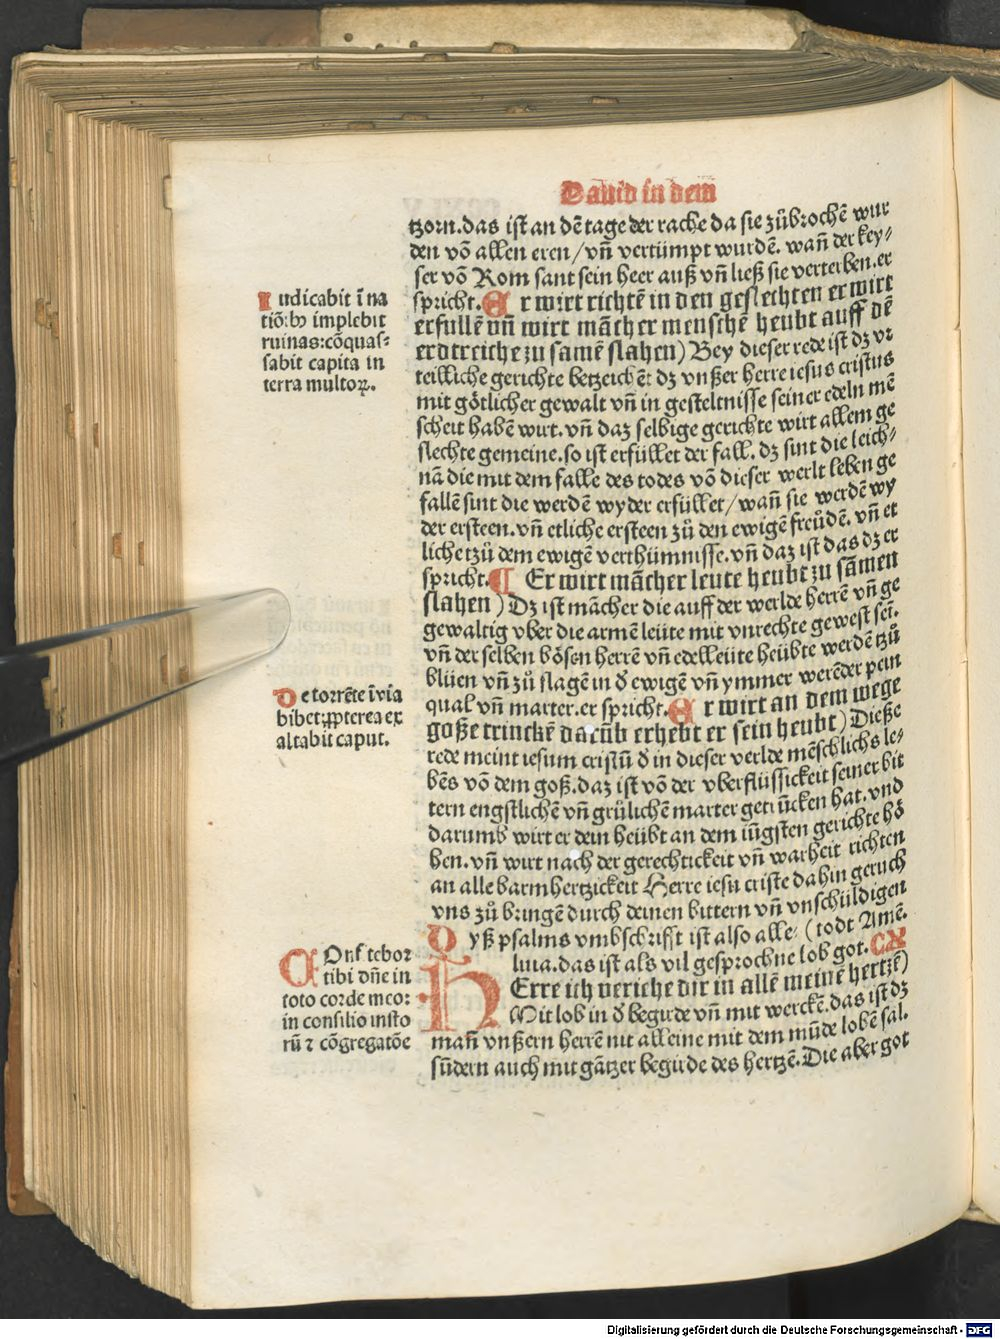 Dauid in dem
tzorn.das ist an dē tage der rache da sie zůbrochē wur
den vō allen eren/vn̄ vertümpt wurdē. wan̄ der key⸗
ser vō Rom sant sein heer auß vn̄ ließ sie verterben.er
spricht. Er wirt richtē in den geslechten er wirt
erfullē vn̄ wirt mācher menschē heubt auff dē
erdtreiche zu samē slahen) Bey dieser rede ist dz vr
teilliche gerichte betzeichēt dz vnßer herre iesus cristus
mit götlicher gewalt vn̄ in gesteltnisse seiner edeln mē
scheit habē wirt. vn̄ daz selbige gerichte wirt allem ge
slechte gemeine.so ist erfüllet der fall. dz sint die leich⸗
nā die mit dem falle des todes vō dieser werlt leben ge
fallē sint die werdē wyder erfüllet/wan̄ sie werdē wy
der ersteen.vn̄ etliche ersteen zů den ewigē freůdē. vn̄ et
liche tzů dem ewigē verthümnisse.vn̄ daz ist das dz er
spricht. ¶ Er wirt mācher leute heubt zu sāmen
slahen) Dz ist mācher die auff der werlde herrē vn̄ ge
gewaltig vber die armē leüte mit vnrechte gewest sēi.
vn̄ der selben bösen herrē vn̄ edelleüte heübte werdē tzů
blüen vn̄ zů slagē in d̄ ewigē vn̄ ymmer werēder pein
qual vn̄ marter.er spricht. Er wirt an dem wege
goße trinckē darūb erhebt er sein heubt) Dieße
rede meint iesum cristū d̄ in dieser verlde mēschlichs le⸗
bēs vō dem goß.daz ist vō der vberflüssickeit seiner bit
tern engstlichē vn̄ grülichē marter getrūcken hat.vnd
darumb wirt er dein heübt an dem iūgsten gerichte hö
hen.vn̄ wirt nach der gerechtickeit vn̄ warheit richten
an alle barmhertzickeit Herre iesu criste dahin geruch
vns zů bringē durch deinen bittern vn̄ vnschüldigen
Dyß psalms vmbschrifft ist also alle⸗ (todt Amē.
luia.das ist als vil gesprochne lob got. CX
HErre ich veriche dir in allē meinē hertzē)
Mit lob in d̄ begirde vn̄ mit werckē.das ist dz
man̄ vnßern herrē nit alleine mit dem mūde lobē sal.
sūdern auch mit gātzer begirde des hertzē. Die aber got
Iudicabit ī na
tiōibꝫ implebit
ruinas:cōquas⸗
sabit capita in
terra multoꝝ.
De torrēte ī via
bibet ꝓpterea ex
altabit caput.
COnfitebor
tibi dn̄e in
toto corde meo:
in consilio iusto
rū ⁊ cōgregatōe
Digitalisierung gefördert durch die Deutsche Forschungsgemeinschaft - DFG